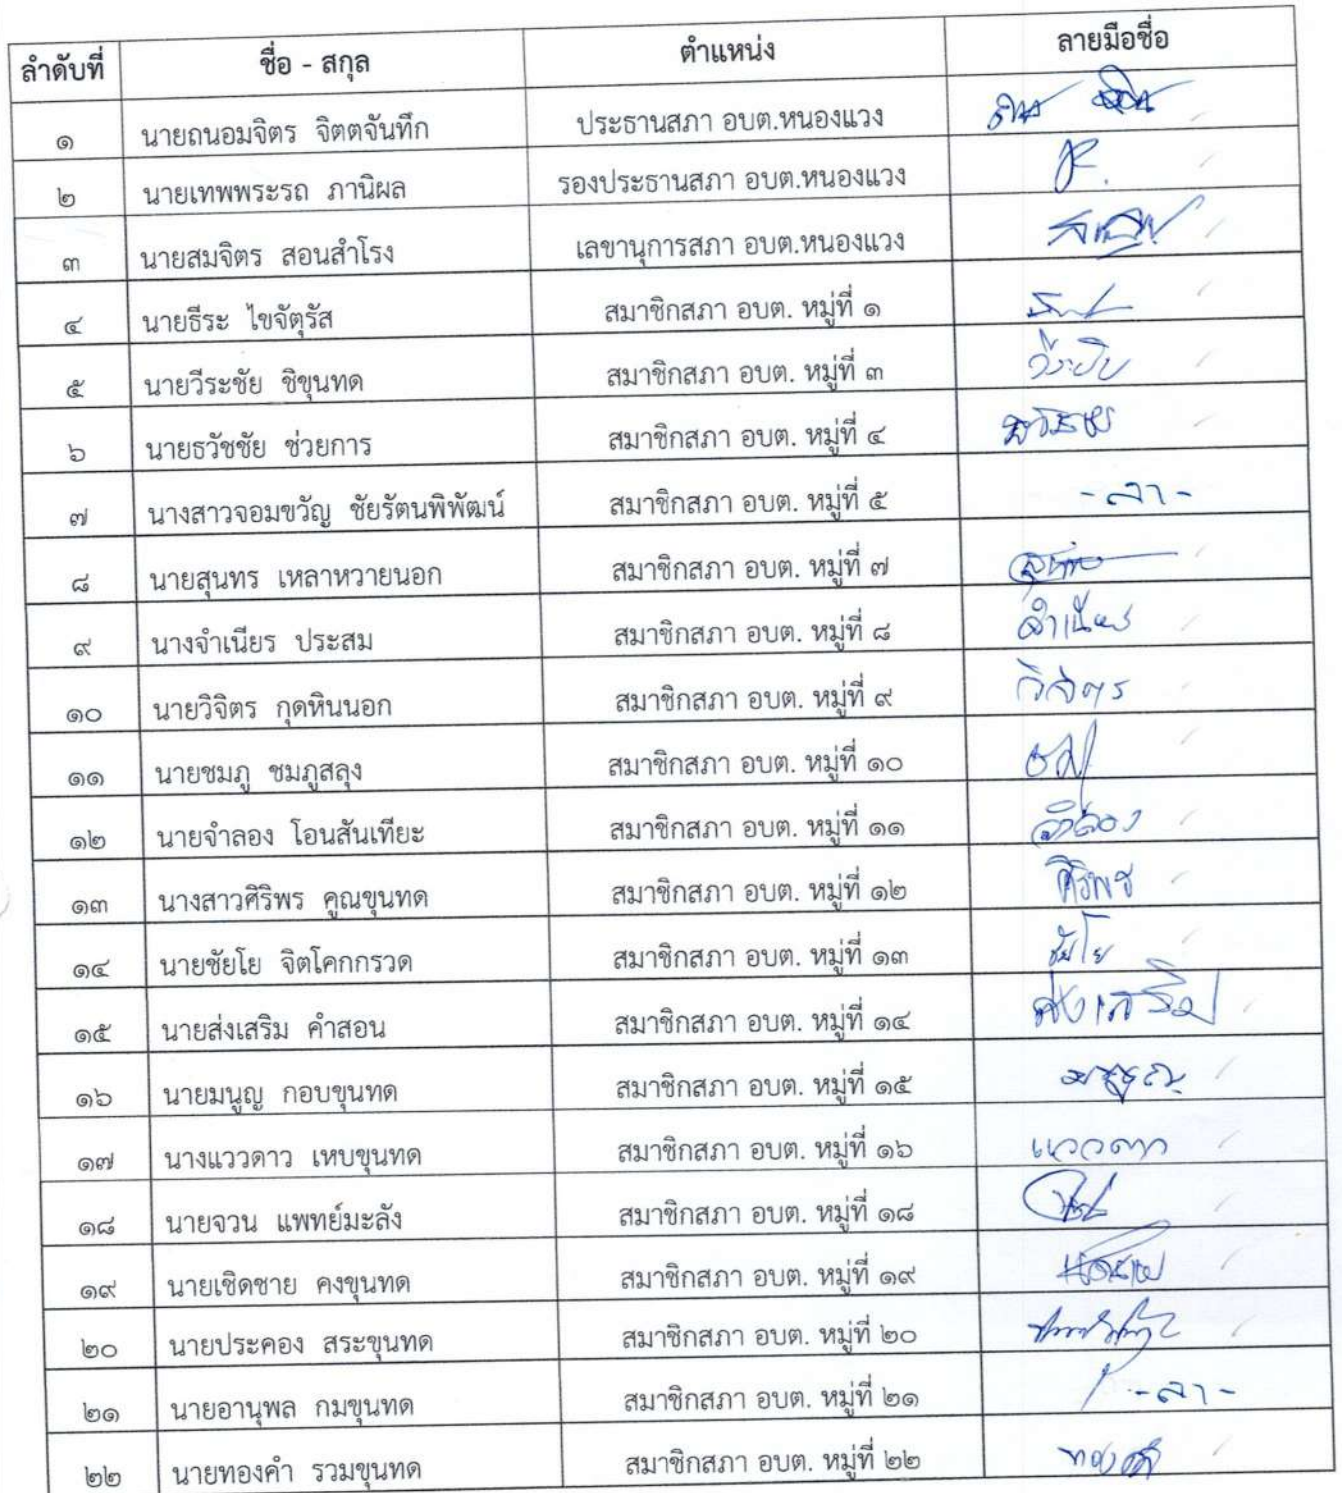 ลำดับที่ ชื่อ - สกุล ตำแหน่ง ลายมือชื่อ
๑ นายถนอมจิตร จิตตจันทึก ประธานสภา อบต.หนองแวง
๒ นายเทพพระรถ ภานิผล รองประธานสภา อบต.หนองแวง
๓ นายสมจิตร สอนสำโรง เลขานุการสภา อบต.หนองแวง
๔ นายธีระ ไขจัตุรัส สมาชิกสภา อบต. หมู่ที่ ๑
๕ นายวีระชัย ชิขุนทด สมาชิกสภา อบต. หมู่ที่ ๓
๖ นายธวัชชัย ช่วยการ สมาชิกสภา อบต. หมู่ที่ ๔
๗ นางสาวจอมขวัญ ชัยรัตนพิพัฒน์ สมาชิกสภา อบต. หมู่ที่ ๕ - ลา -
๘ นายสุนทร เหลาหวายนอก สมาชิกสภา อบต. หมู่ที่ ๗
๙ นางจำเนียร ประสม สมาชิกสภา อบต. หมู่ที่ ๘ จำเนียร
๑๐ นายวิจิตร กุดหินนอก สมาชิกสภา อบต. หมู่ที่ ๙ วิจิตร
๑๑ นายชมภู ชมภูสลุง สมาชิกสภา อบต. หมู่ที่ ๑๐
๑๒ นายจำลอง โอนสันเทียะ สมาชิกสภา อบต. หมู่ที่ ๑๑ จำลอง
๑๓ นางสาวศิริพร คูณขุนทด สมาชิกสภา อบต. หมู่ที่ ๑๒ ศิริพร
๑๔ นายชัยโย จิตโคกกรวด สมาชิกสภา อบต. หมู่ที่ ๑๓ ชัยโย
๑๕ นายส่งเสริม คำสอน สมาชิกสภา อบต. หมู่ที่ ๑๔ ส่งเสริม
๑๖ นายมนูญ กอบขุนทด สมาชิกสภา อบต. หมู่ที่ ๑๕
๑๗ นางแววดาว เหบขุนทด สมาชิกสภา อบต. หมู่ที่ ๑๖ แววดาว
๑๘ นายจวน แพทย์มะลัง สมาชิกสภา อบต. หมู่ที่ ๑๘
๑๙ นายเชิดชาย คงขุนทด สมาชิกสภา อบต. หมู่ที่ ๑๙
๒๐ นายประคอง สระขุนทด สมาชิกสภา อบต. หมู่ที่ ๒๐
๒๑ นายอานุพล กมขุนทด สมาชิกสภา อบต. หมู่ที่ ๒๑ - ลา -
๒๒ นายทองคำ รวมขุนทด สมาชิกสภา อบต. หมู่ที่ ๒๒ ทองคำ